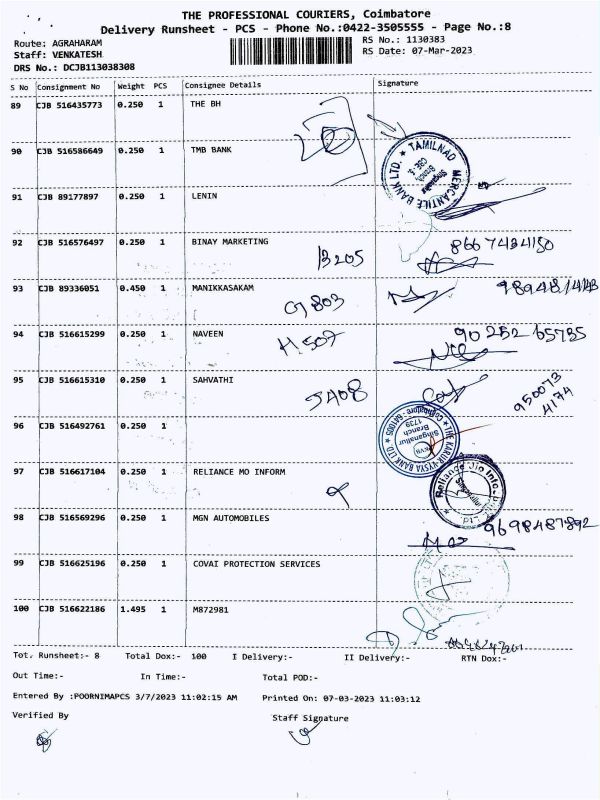 THE PROFESSIONAL COURIERS, Coimbatore
Delivery Runsheet - PCS - Phone No.:0422-3505555 - Page No.:8
Route: AGRAHARAM
Staff: VENKATESH
DRS No.: DCJB113038308
RS No.: 1130383
RS Date: 07-Mar-2023
S No Consignment No Weight PCS Consignee Details Signature
89 CJB 516435773 0.250 1 THE BH
90 CJB 516586649 0.250 1 TMB BANK
TAMILNAD MERCANTILE BANK LTD.
91 CJB 89177897 0.250 1 LENIN
92 CJB 516576497 0.250 1 BINAY MARKETING
B205 8667434150
93 CJB 89336051 0.450 1 MANIKKASAKAM
G803
94 CJB 516615299 0.250 1 NAVEEN
H507 90252 65735
95 CJB 516615310 0.250 1 SAHVATHI
JA08 950073
4174
96 CJB 516492761 0.250 1
THE KARUR VYSYA BANK LTD
Singanallur
Branch
1739
Coimbatore - 641005
97 CJB 516617104 0.250 1 RELIANCE MO INFORM
Reliance Jio Infoco
98 CJB 516569296 0.250 1 MGN AUTOMOBILES
9698487892
99 CJB 516625196 0.250 1 COVAI PROTECTION SERVICES
100 CJB 516622186 1.495 1 M872981
Tot. Runsheet:- 8 Total Dox:- 100 I Delivery:- II Delivery:- RTN Dox:-
Out Time:- In Time:- Total POD:-
Entered By :POORNIMAPCS 3/7/2023 11:02:15 AM Printed On: 07-03-2023 11:03:12
Verified By Staff Signature